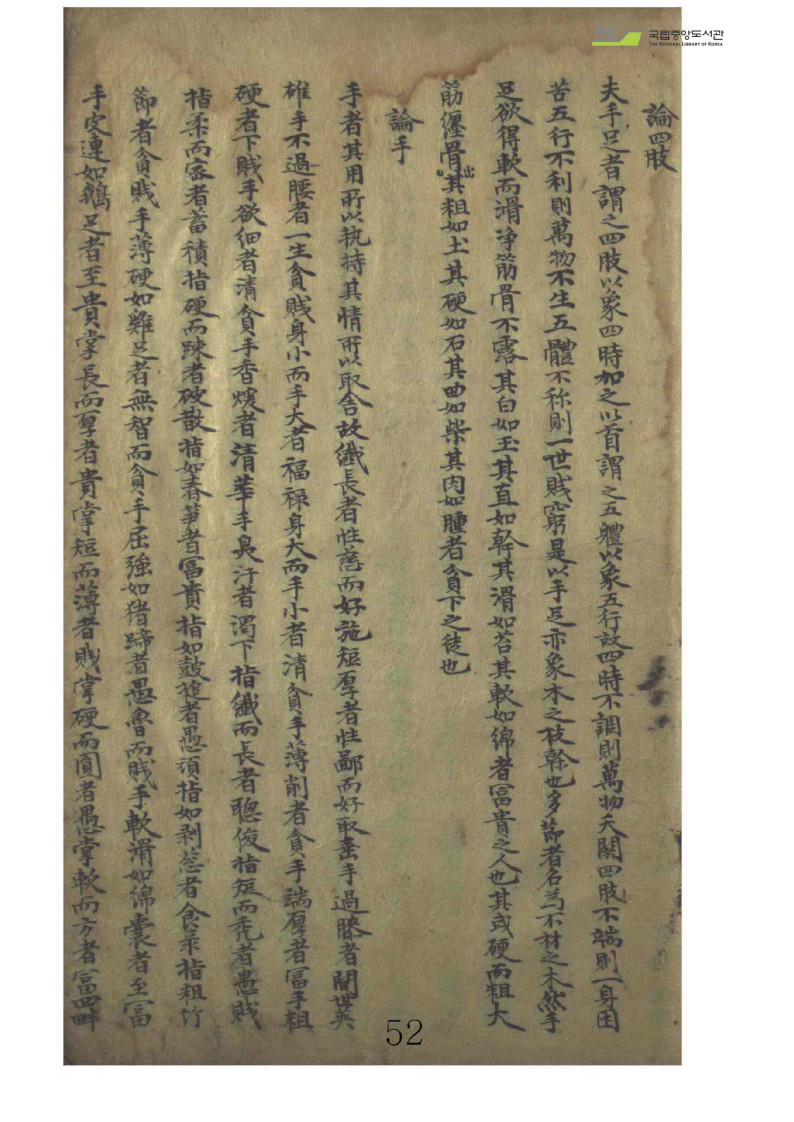 국립중앙도서관
THE NATIONAL LIBRARY OF KOREA
論四肢
夫手足者謂之四肢以象四時加之以首謂之五體以象五行故四時不調則萬物夭閼四肢不端則一身困
苦五行不利則萬物不生五體不称則一世賎窮是以手足亦象木之枝幹也多莭者名為不材之木然手
足欲得軟而滑净筋骨不露其白如玉其直如幹其滑如苔其軟如綿者冨貴之人也其或硬而粗大
筋纒骨出其粗如土其硬如石其曲如柴其肉如腫者貧下之徒也
論手
手者其用所以執持其情所以取舎故纖長者性慈而好施短厚者性鄙而好取垂手過膝者間世英
雄手不過腰者一生貧賎身小而手大者福禄身大而手小者清貧手薄削者貧手端厚者冨手粗
硬者下賎手欲細者清貧手香煖者清華手臭汗者濁下指纖而長者聰俊指短而秃者愚賎
指柔而宻者蓄積指硬而踈者破散指如春笋者冨貴指如鼓搥者愚頑指如剥葱者食禄指粗竹
莭者貧賎手薄硬如雞足者無智而貧手屈強如猪蹄者愚魯而賎手軟滑如綿囊者至冨
手皮連如鵝足者至貴掌長而厚者貴掌短而薄者賎掌硬而圓者愚掌軟而方者冨四畔
52